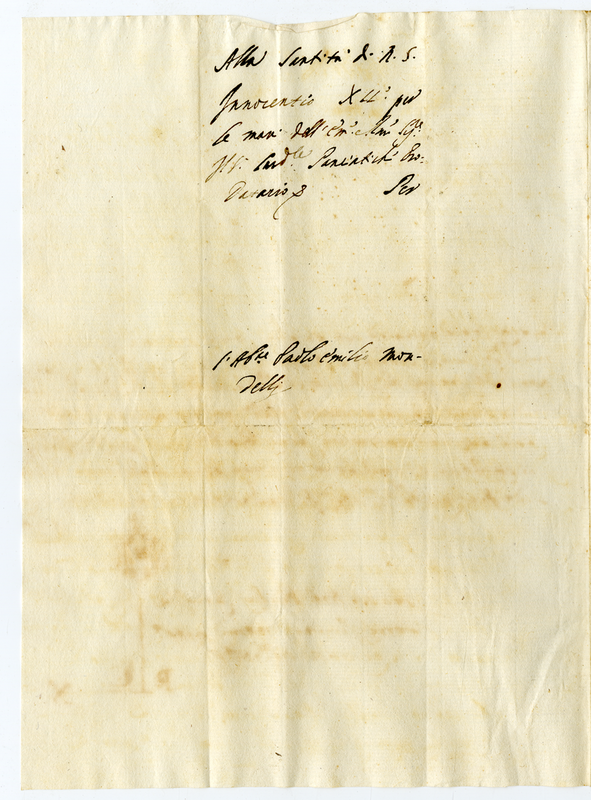 Alla Santità di N. S.
Innocentio XII.º per
le mani dell'Em.º e Rm.º Sig.r
Card.le Panciatichi Pro-
Datario Per
l'Ab.te Paolo Emilio Mon-
delli